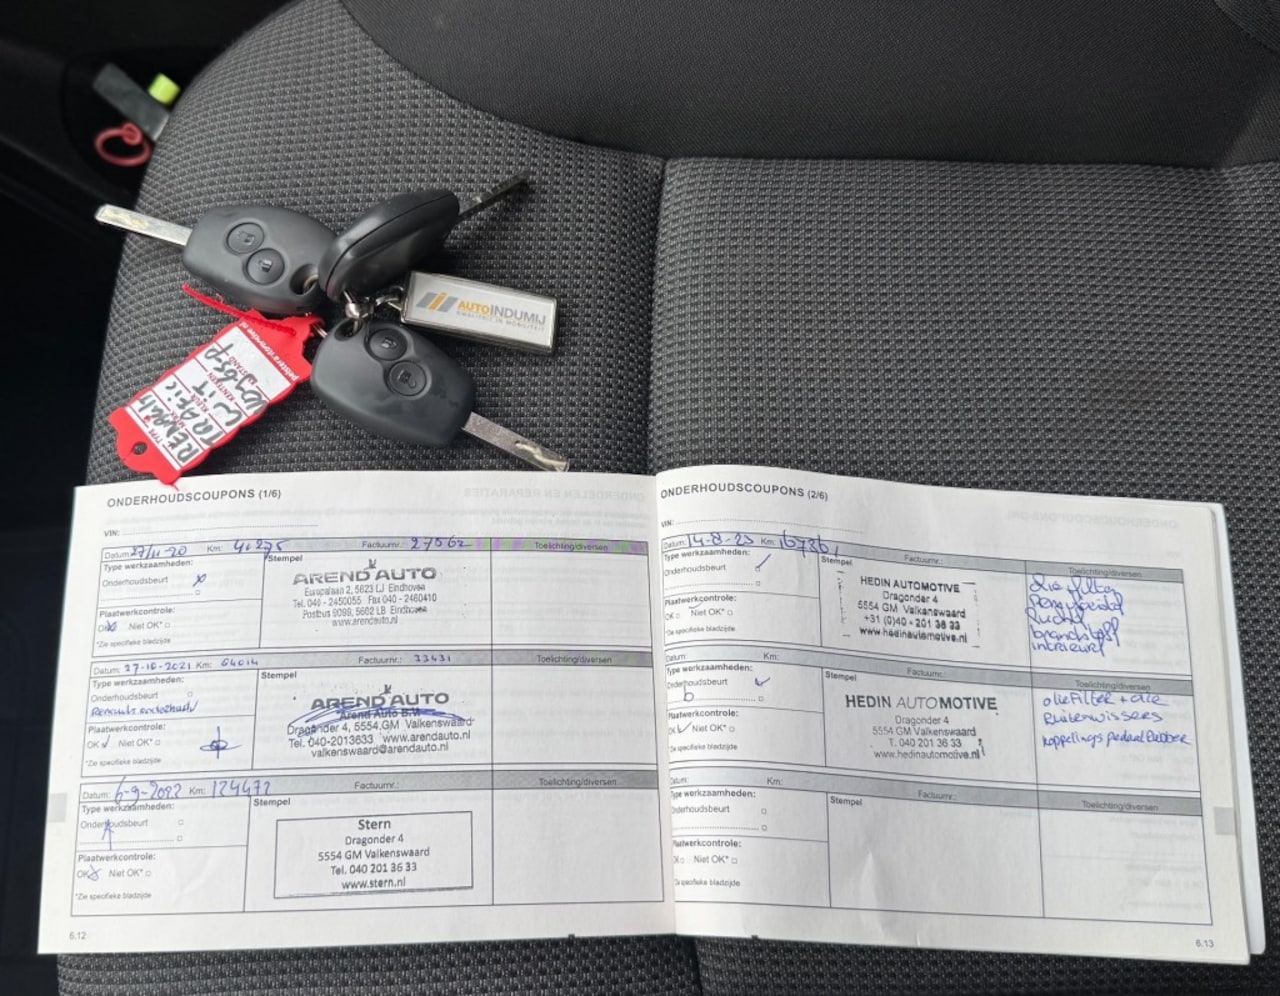 AUTOINDUMIJ
KWALITEIT IN MOBILITEIT
RENAULT
TRAFIC
WIT
KENTEKEN
ONDERHOUDSCOUPONS (1/6)
VIN:
Datum: 27/11-20 Km: 41275 Factuurnr.: 27562 Toelichting/diversen
Type werkzaamheden:
Onderhoudsbeurt
Plaatwerkcontrole:
OK Niet OK*
*Zie specifieke bladzijde
Stempel
AREND AUTO
Europalaan 2, 5623 LJ Eindhoven
Tel. 040 - 2450055 Fax 040 - 2460410
Postbus 9099, 5602 LB Eindhoven
www.arendauto.nl
Datum: 27-10-2021 Km: 64014 Factuurnr.: 33431 Toelichting/diversen
Type werkzaamheden:
Onderhoudsbeurt
Plaatwerkcontrole:
OK Niet OK*
*Zie specifieke bladzijde
Stempel
AREND AUTO
Arend Auto B.V.
Dragonder 4, 5554 GM Valkenswaard
Tel. 040-2013633 www.arendauto.nl
valkenswaard@arendauto.nl
Datum: 6-9-2022 Km: 124472 Factuurnr.: Toelichting/diversen
Type werkzaamheden:
Onderhoudsbeurt
Plaatwerkcontrole:
OK Niet OK*
*Zie specifieke bladzijde
Stempel
Stern
Dragonder 4
5554 GM Valkenswaard
Tel. 040 201 36 33
www.stern.nl
6.12
ONDERHOUDSCOUPONS (2/6)
VIN:
Datum: 14-8-23 Km: 167861 Factuurnr.: Toelichting/diversen
Type werkzaamheden:
Onderhoudsbeurt
Plaatwerkcontrole:
OK Niet OK*
*Zie specifieke bladzijde
Stempel
HEDIN AUTOMOTIVE
Dragonder 4
5554 GM Valkenswaard
+31 (0)40 - 201 36 33
www.hedinautomotive.nl
Olie filter
Lucht
brandstoff
intrieurf
Datum: Km: Factuurnr.: Toelichting/diversen
Type werkzaamheden:
Onderhoudsbeurt
b
Plaatwerkcontrole:
OK Niet OK*
*Zie specifieke bladzijde
Stempel
HEDIN AUTOMOTIVE
Dragonder 4
5554 GM Valkenswaard
T. 040 201 36 33
www.hedinautomotive.nl
olieFilter + olie
Ruitenwissers
koppelings pedaal Rubber
Datum: Km: Factuurnr.: Toelichting/diversen
Type werkzaamheden:
Onderhoudsbeurt
Plaatwerkcontrole:
OK Niet OK*
*Zie specifieke bladzijde
Stempel
6.13